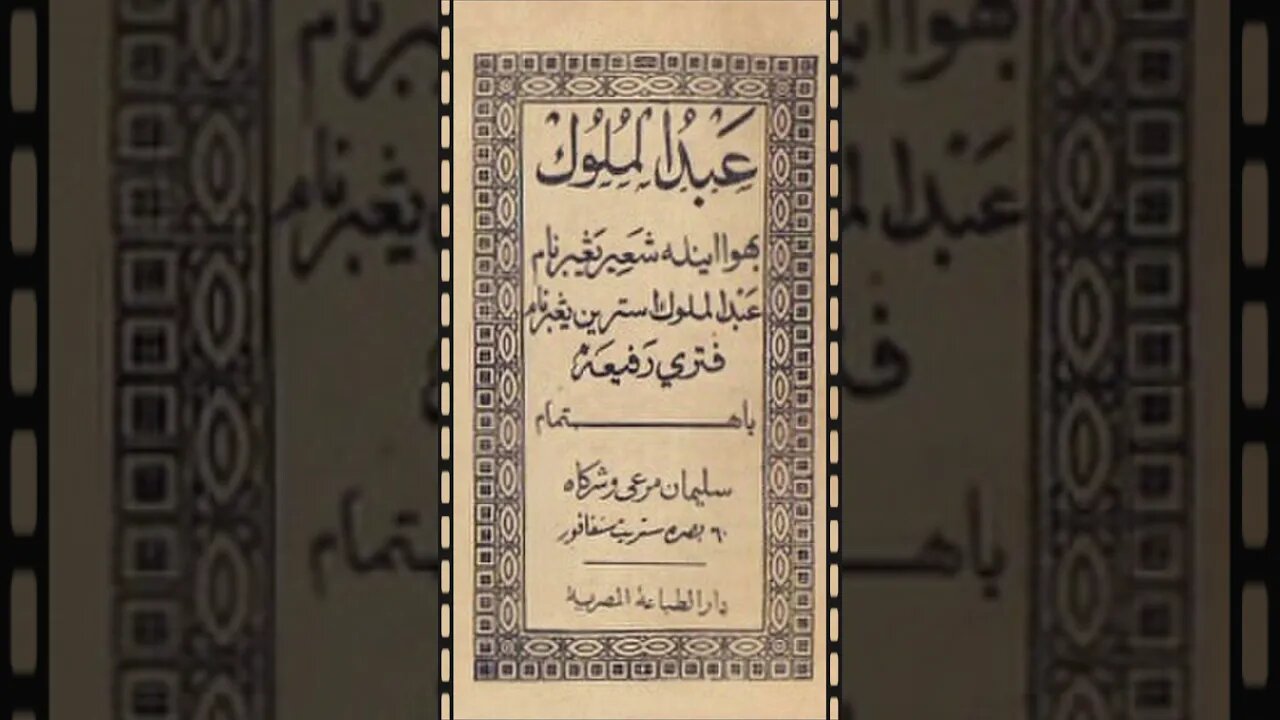 عَبْدُ الْمُلُوك
بهوا اينله شَعِير يَڠبرنام
عَبْد الملوك استرين يڠبرنام
فتري رَفيعَة
باهـــــــتمام
سليمان مرعي وشركاه
٦٠ بصره ستريت سنغافور
دار الطباعة المصرية